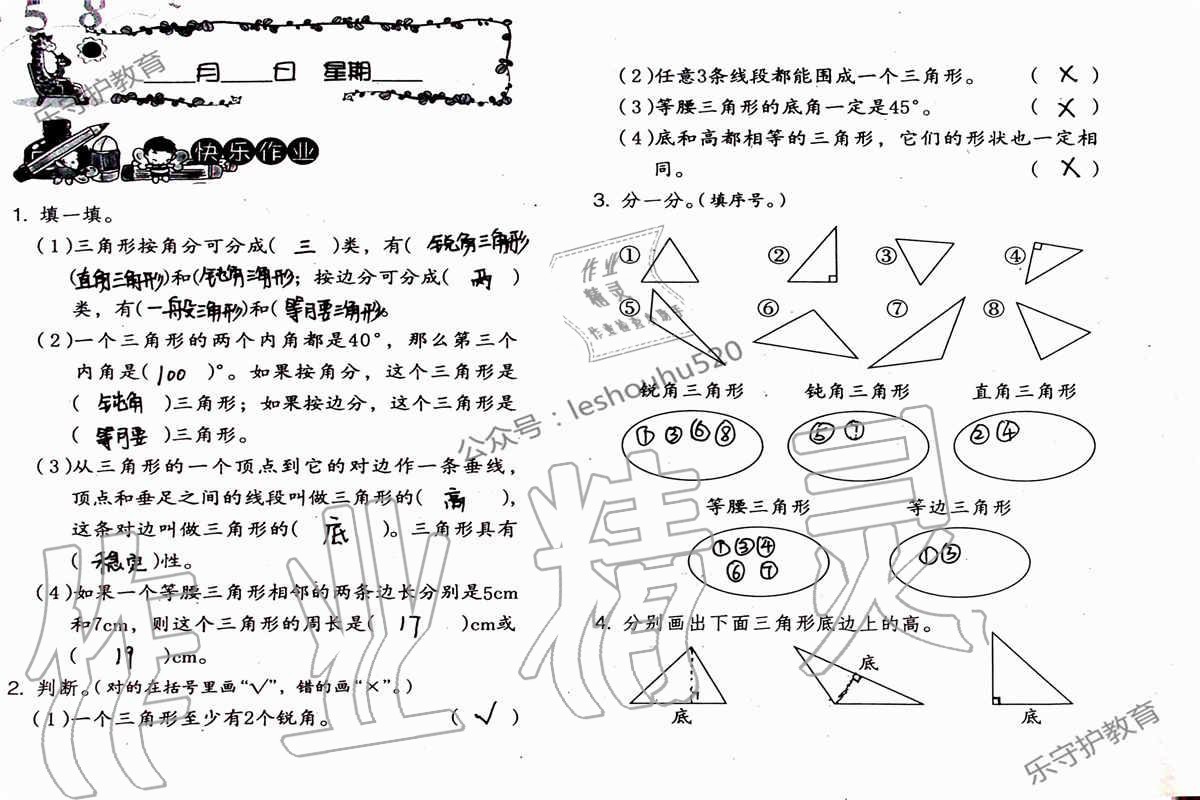 58
乐守护教育
____月____日 星期____
快乐作业
1. 填一填。
(1)三角形按角分可分成( 三 )类，有(锐角三角形
(直角三角形)和(钝角三角形)；按边分可分成( 两 )
类，有(一般三角形)和(等腰三角形)。
(2)一个三角形的两个内角都是40°，那么第三个
内角是( 100 )°。如果按角分，这个三角形是
( 钝角 )三角形；如果按边分，这个三角形是
( 等腰 )三角形。
(3)从三角形的一个顶点到它的对边作一条垂线，
顶点和垂足之间的线段叫做三角形的( 高 )，
这条对边叫做三角形的( 底 )。三角形具有
( 稳定 )性。
(4)如果一个等腰三角形相邻的两条边长分别是5cm
和7cm，则这个三角形的周长是( 17 )cm或
( 19 )cm。
2. 判断。(对的在括号里画“√”，错的画“×”。)
(1)一个三角形至少有2个锐角。 ( √ )
(2)任意3条线段都能围成一个三角形。 ( × )
(3)等腰三角形的底角一定是45°。 ( × )
(4)底和高都相等的三角形，它们的形状也一定相
同。 ( × )
3. 分一分。(填序号。)
① ② ③ ④
⑤ ⑥ ⑦ ⑧
锐角三角形 钝角三角形 直角三角形
①③⑥⑧ ⑤⑦ ②④
等腰三角形 等边三角形
①③④ ①③
⑥⑦
4. 分别画出下面三角形底边上的高。
底 底 底
作业
精灵
公众号：leshouhu520
作业精灵
乐守护教育